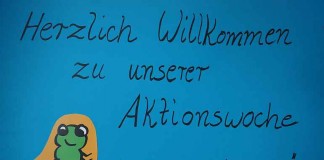 Herzlich Willkommen
zu unserer
Aktionswoche
!